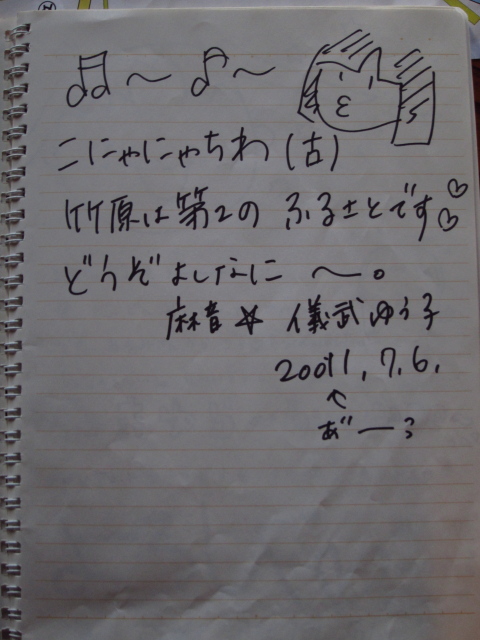 ♫〜 ♪〜
こにゃにゃちわ(古)
竹原は第2の ふるさとです♡♡
どうぞよしなに 〜。
麻音☆ 儀武ゆう子
20011, 7, 6,
↑
あ゛ーっ